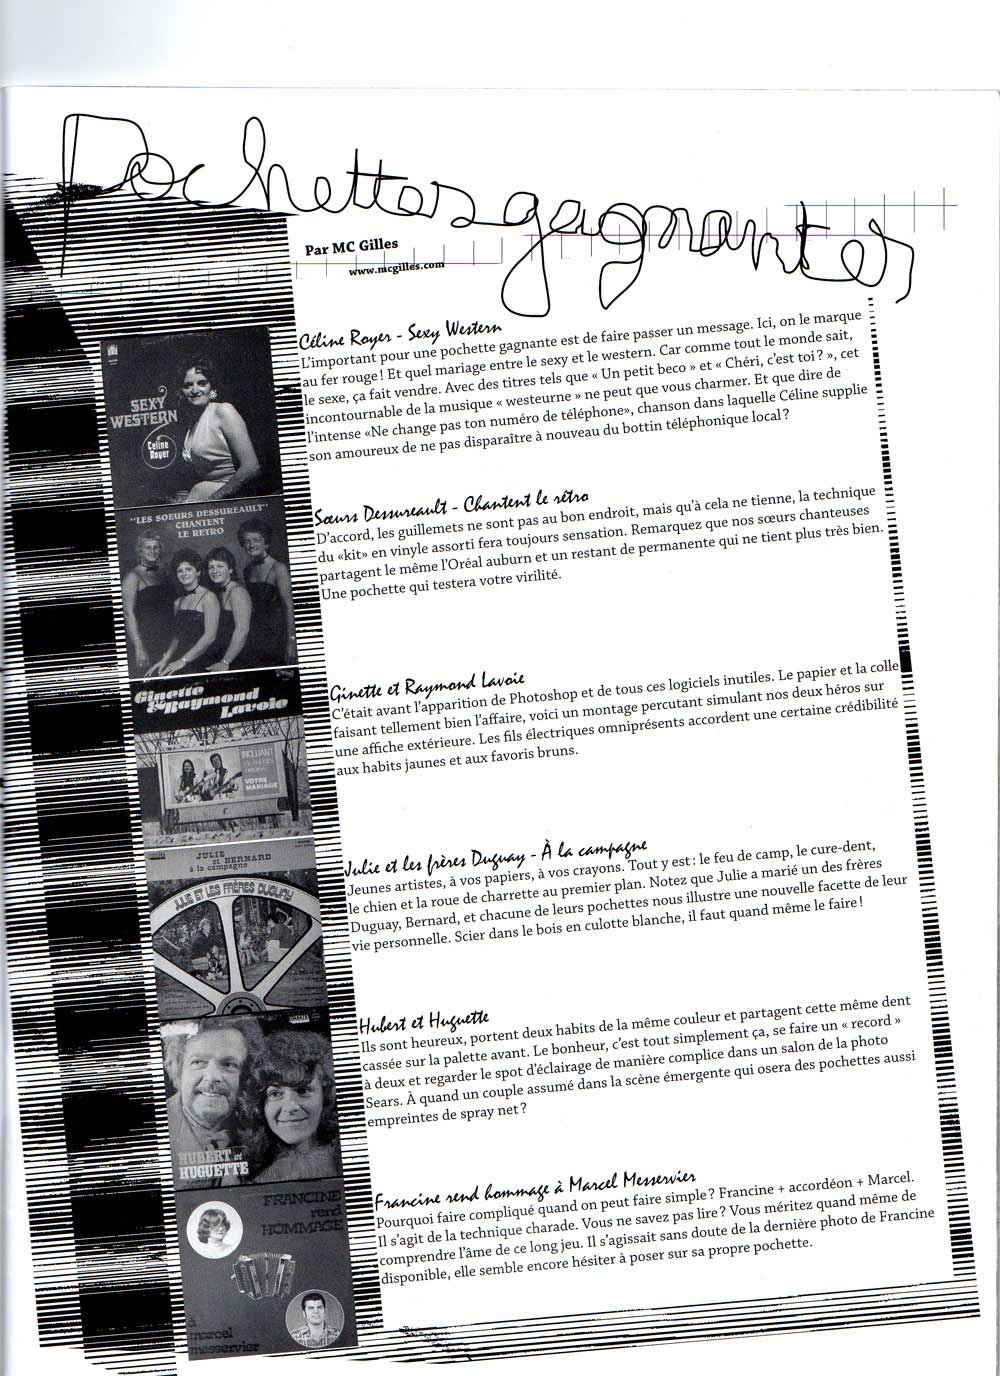 Pochettes gagnantes
Par MC Gilles
www.mcgilles.com
Céline Royer - Sexy Western
L'important pour une pochette gagnante est de faire passer un message. Ici, on le marque
au fer rouge! Et quel mariage entre le sexy et le western. Car comme tout le monde sait,
le sexe, ça fait vendre. Avec des titres tels que « Un petit beco » et « Chéri, c'est toi? », cet
incontournable de la musique « westeurne » ne peut que vous charmer. Et que dire de
l'intense «Ne change pas ton numéro de téléphone», chanson dans laquelle Céline supplie
son amoureux de ne pas disparaître à nouveau du bottin téléphonique local?
SEXY
WESTERN
Céline
Royer
Sœurs Dessureault - Chantent le rétro
D'accord, les guillemets ne sont pas au bon endroit, mais qu'à cela ne tienne, la technique
du «kit» en vinyle assorti fera toujours sensation. Remarquez que nos sœurs chanteuses
partagent le même l'Oréal auburn et un restant de permanente qui ne tient plus très bien.
Une pochette qui testera votre virilité.
"LES SOEURS DESSUREAULT"
CHANTENT
LE RETRO
Ginette et Raymond Lavoie
C'était avant l'apparition de Photoshop et de tous ces logiciels inutiles. Le papier et la colle
faisant tellement bien l'affaire, voici un montage percutant simulant nos deux héros sur
une affiche extérieure. Les fils électriques omniprésents accordent une certaine crédibilité
aux habits jaunes et aux favoris bruns.
Ginette
& Raymond
Lavoie
INCLUANT
VOTRE
MARIAGE
Julie et les frères Duguay - À la campagne
Jeunes artistes, à vos papiers, à vos crayons. Tout y est : le feu de camp, le cure-dent,
le chien et la roue de charrette au premier plan. Notez que Julie a marié un des frères
Duguay, Bernard, et chacune de leurs pochettes nous illustre une nouvelle facette de leur
vie personnelle. Scier dans le bois en culotte blanche, il faut quand même le faire!
JULIE
et BERNARD
à la campagne
JULIE ET LES FRÈRES DUGUAY
Hubert et Huguette
Ils sont heureux, portent deux habits de la même couleur et partagent cette même dent
cassée sur la palette avant. Le bonheur, c'est tout simplement ça, se faire un « record »
à deux et regarder le spot d'éclairage de manière complice dans un salon de la photo
Sears. À quand un couple assumé dans la scène émergente qui osera des pochettes aussi
empreintes de spray net?
HUBERT et
HUGUETTE
Francine rend hommage à Marcel Messervier
Pourquoi faire compliqué quand on peut faire simple? Francine + accordéon + Marcel.
Il s'agit de la technique charade. Vous ne savez pas lire? Vous méritez quand même de
comprendre l'âme de ce long jeu. Il s'agissait sans doute de la dernière photo de Francine
disponible, elle semble encore hésiter à poser sur sa propre pochette.
FRANCINE
rend
HOMMAGE
à
marcel
messervier